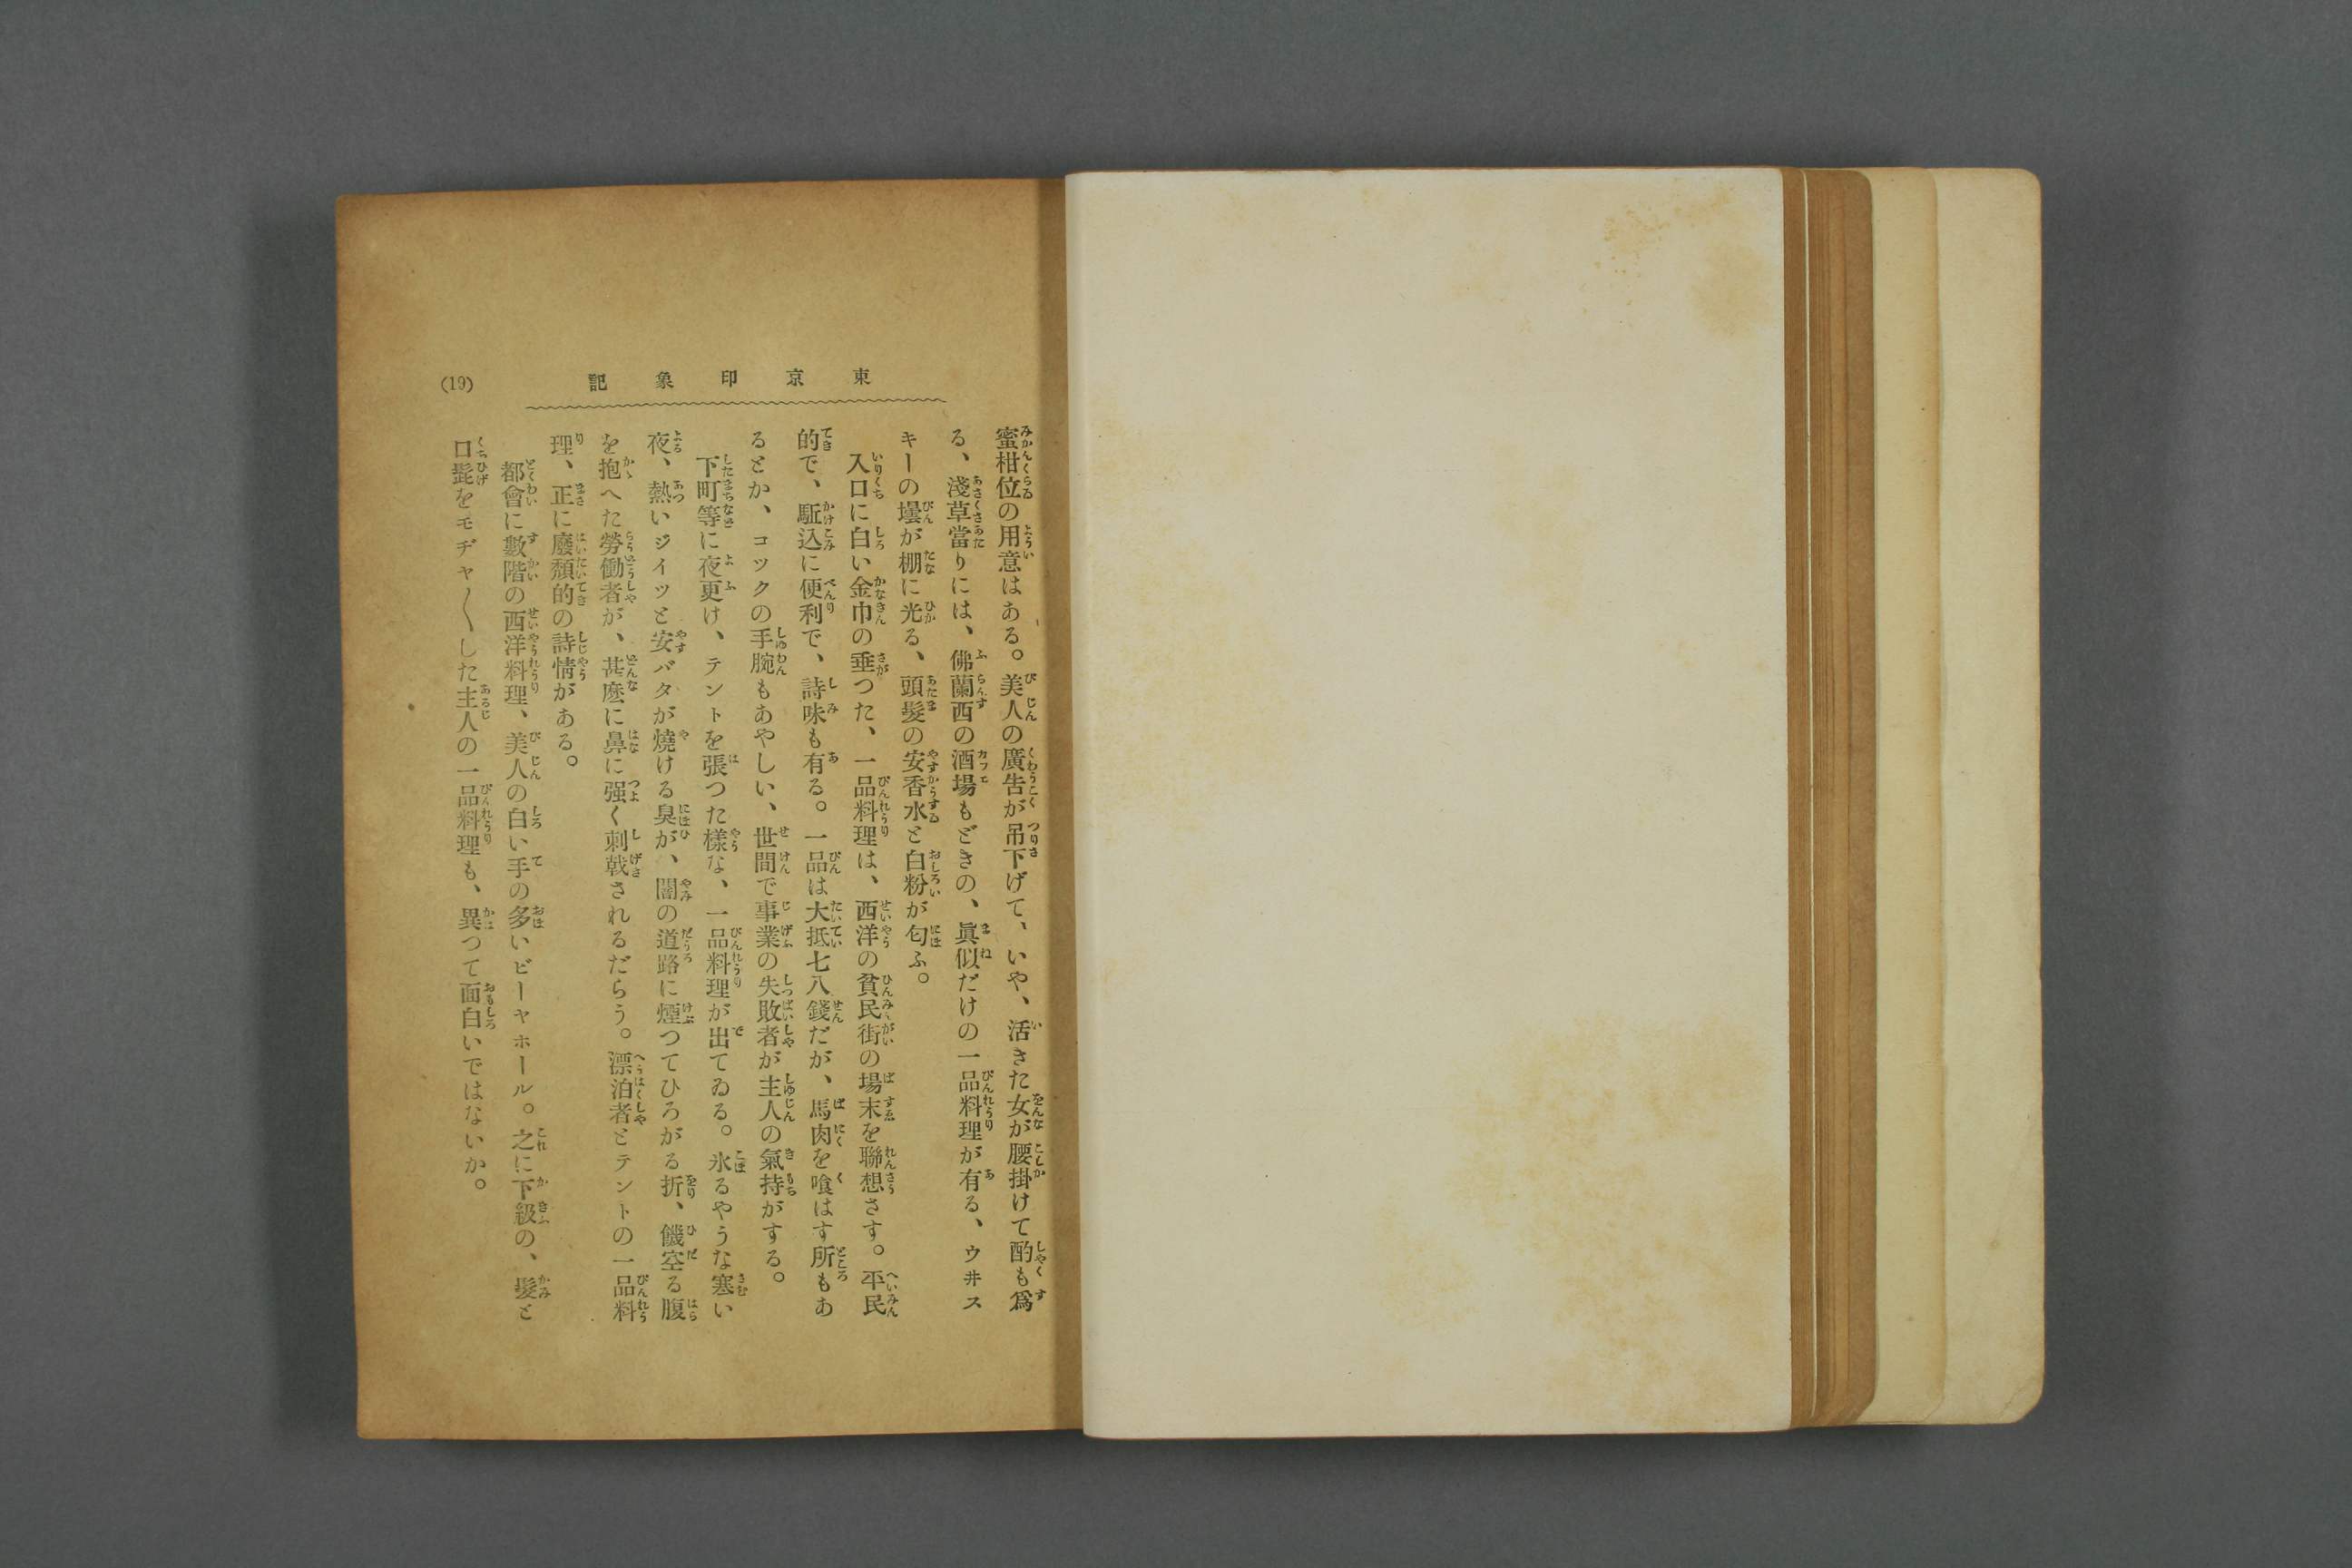 東京印象記
(19)
蜜柑位の用意はある。美人の廣告が吊下げて、いや、活きた女が腰掛けて酌も爲
る、淺草當りには、佛蘭西の酒場もどきの、眞似だけの一品料理が有る、ウ井ス
キーの壜が棚に光る、頭髮の安香水と白粉が匂ふ。
入口に白い金巾の垂つた、一品料理は、西洋の貧民街の場末を聯想さす。平民
的で、駈込に便利で、詩味も有る。一品は大抵七八錢だが、馬肉を喰はす所もあ
るとか、コックの手腕もあやしい、世間で事業の失敗者が主人の氣持がする。
下町等に夜更け、テントを張つた樣な、一品料理が出てゐる。氷るやうな寒い
夜、熱いジイッと安バタが燒ける臭が、闇の道路に煙つてひろがる折、饑空る腹
を抱へた勞働者が、甚麽に鼻に强く刺戟されるだらう。漂泊者とテントの一品料
理、正に廢頽的の詩情がある。
都會に數階の西洋料理、美人の白い手の多いビーヤホール。之に下級の、髮と
口髭をモヂャ〱した主人の一品料理も、異つて面白いではないか。